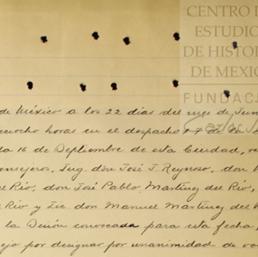 CENTRO D
ESTUDIO
DE HISTOR
DE MEXIC
FUNDACA
de México a los 22 días del mes de Jun
ocho horas en el despacho de
da 16 de Septiembre de esta Ciudad,
onsejeros, Ing. don José J. Reynoso, don
del Río, don José Pablo Martínez del Río,
Río y Lic don Manuel Martínez del
la Sesión convocada para esta fecha,
ejo por designar por unanimidad de vo